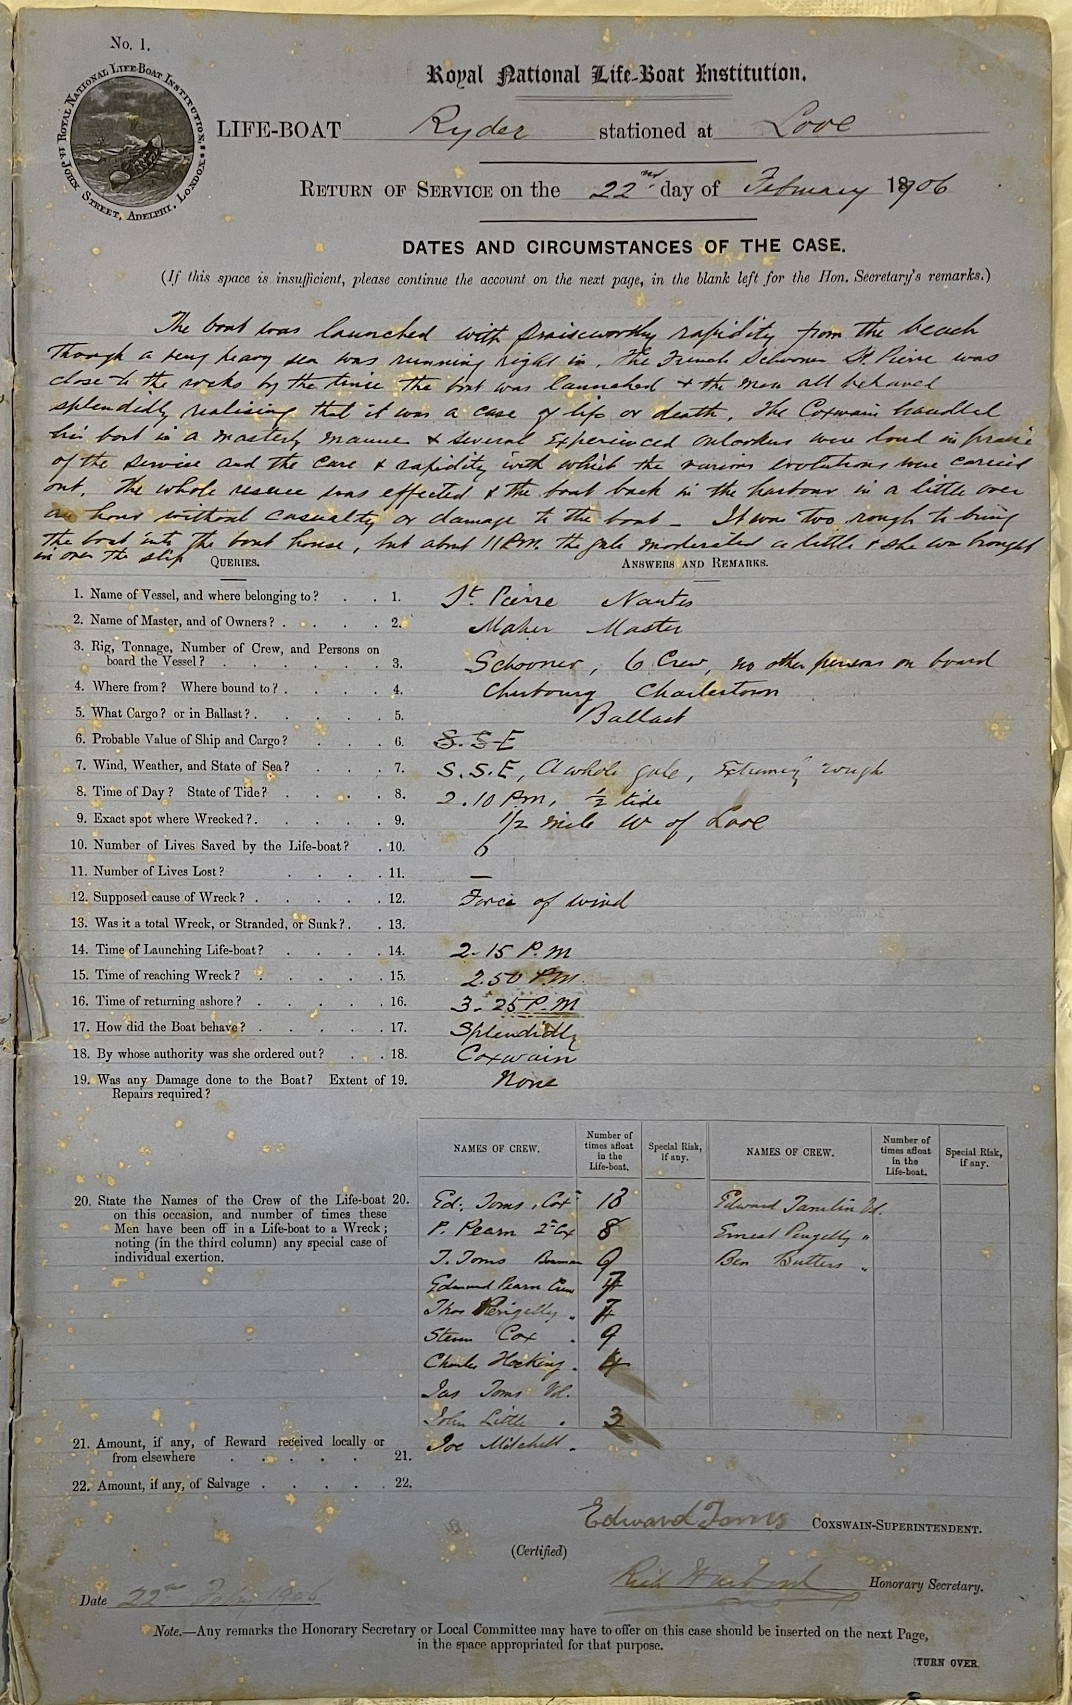 No. 1.
ROYAL NATIONAL LIFE-BOAT INSTITUTION, JOHN STREET, ADELPHI, LONDON.
Royal National Life-Boat Institution.
LIFE-BOAT Ryder stationed at Looe
RETURN OF SERVICE on the 22nd day of February 1906
DATES AND CIRCUMSTANCES OF THE CASE.
(If this space is insufficient, please continue the account on the next page, in the blank left for the Hon. Secretary's remarks.)
The boat was launched with praiseworthy rapidity from the beach
though a very heavy sea was running right in. The French Schooner St. Pierre was
close to the rocks by the time the boat was launched & the men all behaved
splendidly realising that it was a case of life or death. The Coxwain handled
his boat in a masterly manner & several experienced onlookers were loud in praise
of the service and the care & rapidity with which the various evolutions were carried
out. The whole rescue was effected & the boat back in the harbour in a little over
an hour without casualty or damage to the boat - It was too rough to bring
the boat into the boat house, but about 11 P.M. the gale moderated a little & she was brought
in over the slip
QUERIES. ANSWERS AND REMARKS.
1. Name of Vessel, and where belonging to? . . 1. St. Pierre Nantes
2. Name of Master, and of Owners? . . . . 2. Maher Master
3. Rig, Tonnage, Number of Crew, and Persons on
board the Vessel? . . . . . 3. Schooner, 6 Crew, no other persons on board
4. Where from? Where bound to? . . . . 4. Cherbourg Charlestown
5. What Cargo? or in Ballast? . . . . . 5. Ballast
6. Probable Value of Ship and Cargo? . . . 6. S.S.E
7. Wind, Weather, and State of Sea? . . . 7. S.S.E, A whole gale, Extremely rough
8. Time of Day? State of Tide? . . . . . 8. 2.10 P.M. ½ tide
9. Exact spot where Wrecked? . . . . . 9. 1/2 mile W of Looe
10. Number of Lives Saved by the Life-boat? . 10. 6
11. Number of Lives Lost? . . . . 11. —
12. Supposed cause of Wreck? . . . . . 12. Force of wind
13. Was it a total Wreck, or Stranded, or Sunk? . . 13.
14. Time of Launching Life-boat? . . . . 14. 2.15 P.M
15. Time of reaching Wreck? . . . . . 15. 2.50 P.M.
16. Time of returning ashore? . . . . . 16. 3.25 P.M
17. How did the Boat behave? . . . . . 17. Splendidly
18. By whose authority was she ordered out? . . 18. Coxwain
19. Was any Damage done to the Boat? Extent of 19. None
Repairs required?
NAMES OF CREW. Number of times afloat in the Life-boat. Special Risk, if any. NAMES OF CREW. Number of times afloat in the Life-boat. Special Risk, if any.
20. State the Names of the Crew of the Life-boat 20.
on this occasion, and number of times these
Men have been off in a Life-boat to a Wreck;
noting (in the third column) any special case of
individual exertion.
Ed. Toms, Cox 18 Edward Tamlin Vol.
P. Pearn 2nd Cox 8 Ernest Pengelly "
T. Toms Bowman 9 Ben Butters "
Edmund Pearn Crew 4
Thos Pengelly " 7
Steven Cox " 9
Charles Hocking " 4
Jas Toms Vol.
John Little " 3
Joe Mitchell "
21. Amount, if any, of Reward received locally or
from elsewhere . . . . . 21.
22. Amount, if any, of Salvage . . . . . 22.
Edward Toms COXSWAIN-SUPERINTENDENT.
(Certified)
Honorary Secretary.
Date 22nd Feby 1906
Note.—Any remarks the Honorary Secretary or Local Committee may have to offer on this case should be inserted on the next Page,
in the space appropriated for that purpose.
[TURN OVER.